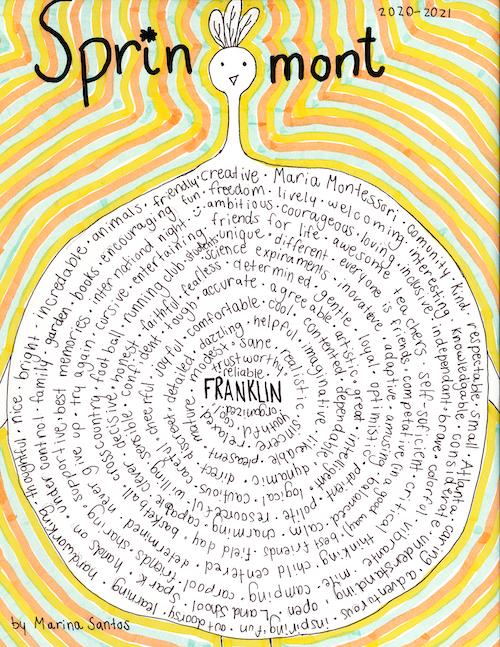 2020-2021
Sprin mont
creative · Maria Montessori · comunity · kind · respectable · small · Atlanta · caring · adventorous · inspiring · fun · outdoorsy · learning · hardworking · thoughtful · nice · bright · incredable · animals · friendly
freedom · lively · welcoming · loving · interesting · knowledgable · considerate · understanding · mile · open · Land school · Spark · hands on · under control · family · garden · books · encouraging · fun
ambitious · courageous · awesome · inclosive · independant · brave · colorful · vibrante · camping · carpool · friends · sharing · supportive · best memories · international night :)
friends for life · teachers · self-sufficient · critical thinking · child centered · determined · never give up · try again · cursive · entertaining
unique · different · everyone is friends · competative (in a good way) · best friends · field day · basketball · clever · crosscountry · football · running club · students
science expiraments · inovative · adaptive · amazing · balanced · calm · charming · capable · willing · decisive · honest · faithful · fearless
determined · gentle · loyal · optimistic · patient · polite · resourceful · careful · sensible · confident · tough · accurate
agreeable · artistic · great · intelligent · dynamic · logical · cautious · discreet · cheerful · joyful · comfortable
cool · contented · dependable · likeable · direct · mature · detailed · dazzling
helpful · imaginative · sincere · pleasent · relaxed · modest · sane · realistic
youthful · organized · trustworthy
reliable
FRANKLIN
by Marina Santos